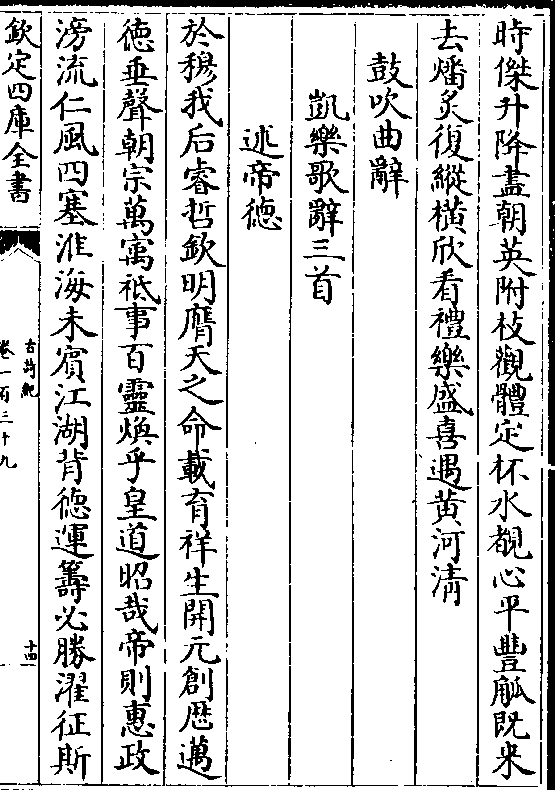 時傑升降盡朝英附枝觀體定杯水覩心平豐觚既來
去燔炙復縱橫欣看禮樂盛喜遇黄河清
鼓吹曲辭
凱樂歌辭三首
述帝德
於穆我后睿哲欽明膺天之命載育祥生開元創歴邁
徳垂聲朝宗萬寓祗事百靈煥乎皇道昭哉帝則惠政
滂流仁風四塞淮海未賔江湖背徳運籌必勝濯征斯
欽定四庫全書
古詩紀
卷一百三十九
十四